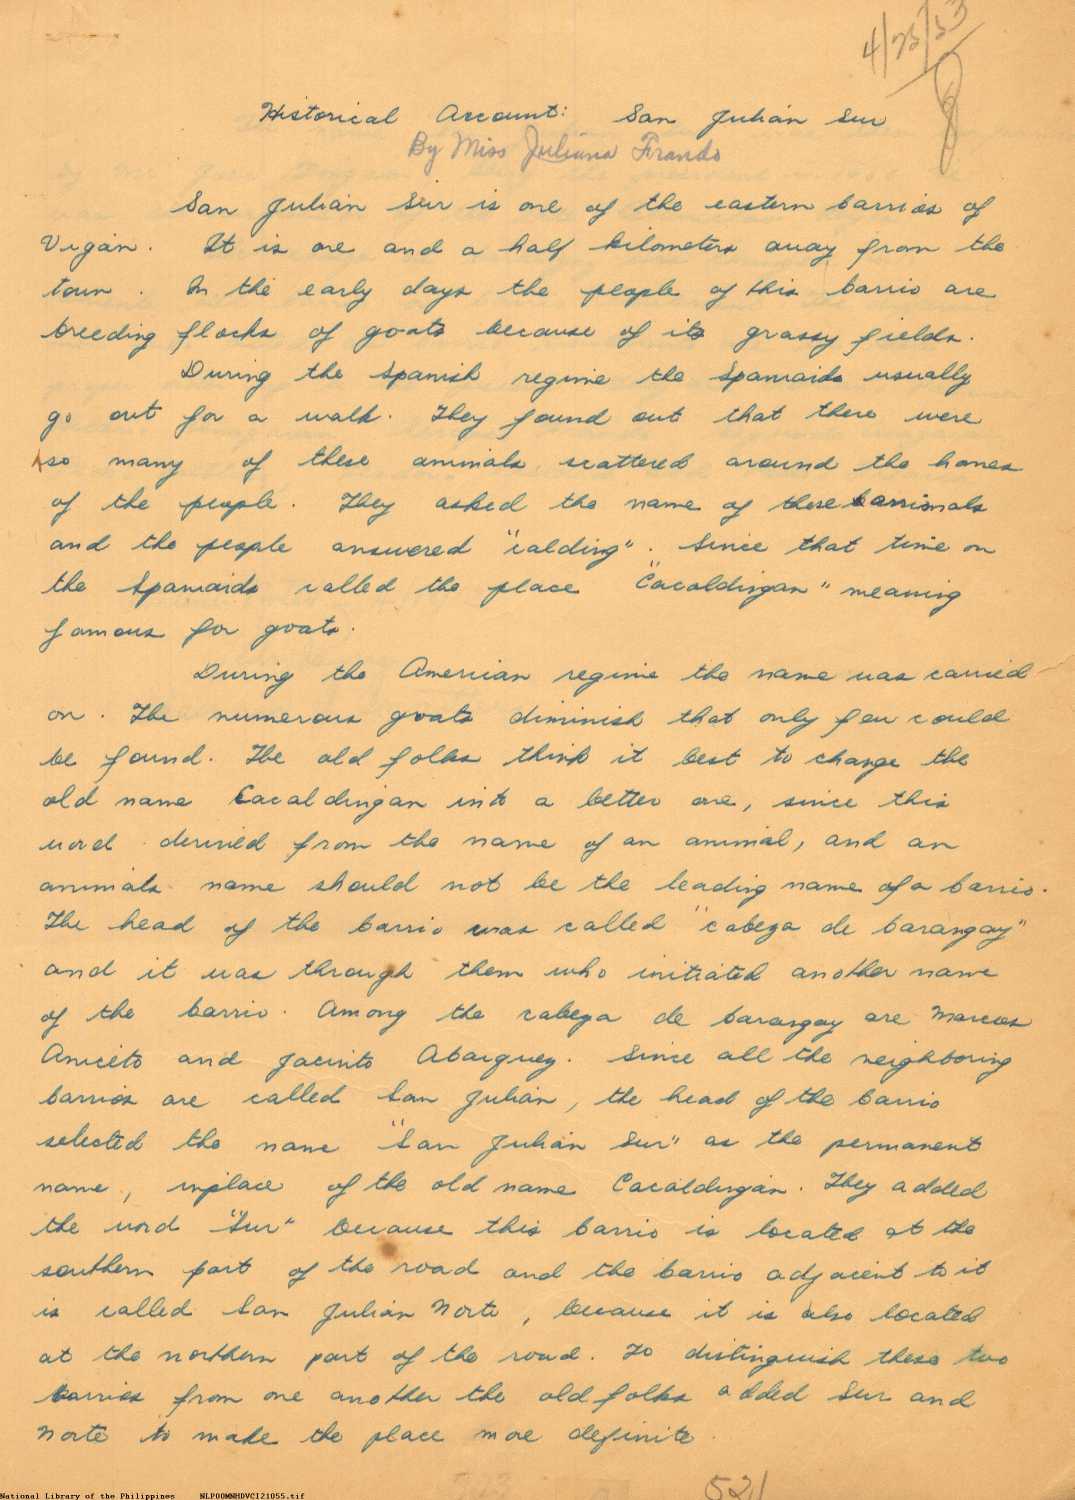 4/23/53
Historical Account: San Julian Sur
By Miss Juliana
San Julian Sur is one of the eastern barrios of
Vigan. It is one and a half kilometers away from the
town. In the early days the people of this barrio are
breeding flocks of goats because of its grassy fields.
During the Spanish regime the Spaniards usually
go out for a walk. They found out that there were
so many of these animals scattered around the homes
of the people. They asked the name of these
and the people answered "calding". Since that time on
the Spaniards called the place "Cacaldingan" meaning
famous for goats.
During the American regime the name was carried
on. The numerous goats diminish that only few could
be found. The old folks think it best to change the
old name Cacaldingan into a better one, since this
word derived from the name of an animal, and an
animals name should not be the leading name of a barrio.
The head of the barrio was called "cabeza de barangay"
and it was through them who initiated another name
of the barrio. Among the cabeza de barangay are Marcos
Aniceto and Jacinto Abarquez. Since all the neighboring
barrios are called San Julian, the head of the barrio
selected the name "San Julian Sur" as the permanent
name, inplace of the old name Cacaldingan. They added
the word "Sur" because this barrio is located at the
southern part of the road and the barrio adjacent to it
is called San Julian Norte, because it is also located
at the northern part of the road. To distinguish these two
barrios from one another the old folks added Sur and
Norte to make the place more definite.
521
National Library of the Philippines NLPOOMNHDVCI21055.tif